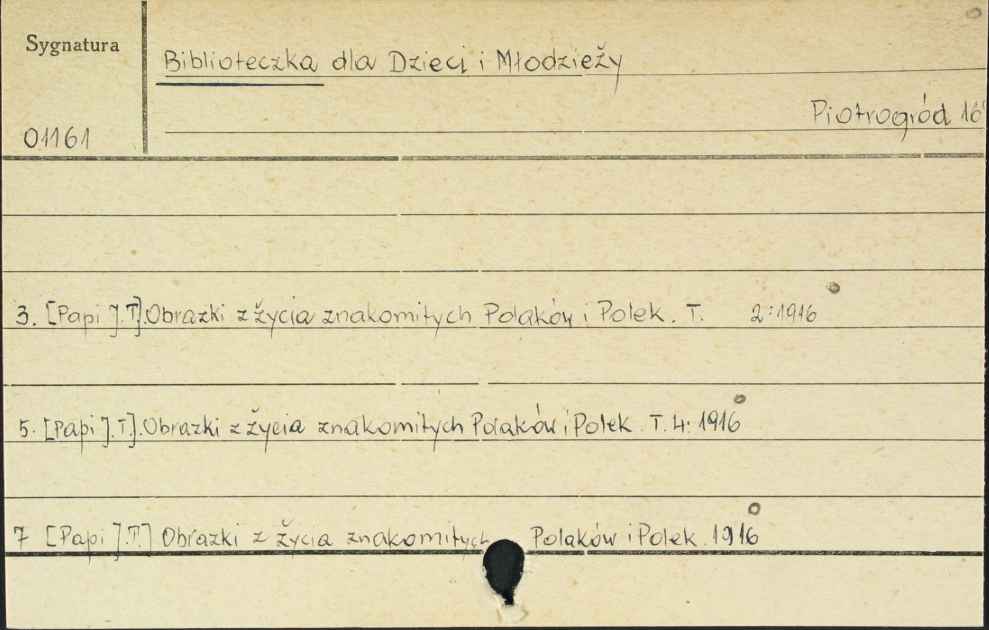 Sygnatura
Biblioteczka dla Dzieci i Młodzieży
Piotrogród 16
01161
3. [Papi J.T].Obrazki z życia znakomitych Polaków i Polek. T. 2:1916
5. [Papi J.T].Obrazki z życia znakomitych Polaków i Polek. T.4:1916
7 [Papi J.T.] Obrazki z życia znakomitych Polaków i Polek. 1916